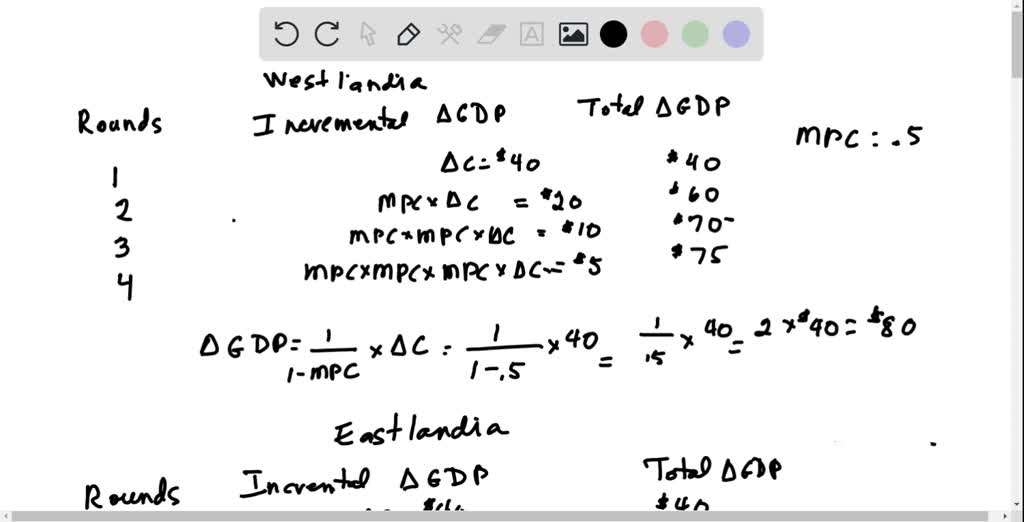 A
Westlandia
Rounds Incremental ΔGDP Total ΔGDP
MPC : .5
1 ΔC = $40 $40
2 MPC × ΔC = $20 $60
3 MPC × MPC × ΔC = $10 $70
4 MPC × MPC × MPC × ΔC = $5 $75
ΔGDP = 1/(1-MPC) × ΔC = 1/(1-.5) × 40 = 1/.5 × 40 = 2 × $40 = $80
Eastlandia
Rounds Incremental ΔGDP Total ΔGDP
$40